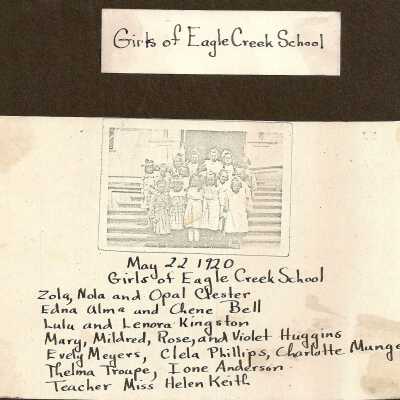 Girls of Eagle Creek School
May 22 1920
Girls of Eagle Creek School
Zola, Nola and Opal Clester
Edna Alma and Chene Bell
Lulu and Lenora Kingston
Mary, Mildred, Rose, and Violet Huggins
Evely Meyers, Clela Phillips, Charlotte Munge
Thelma Troupe, Ione Anderson
Teacher Miss Helen Keith